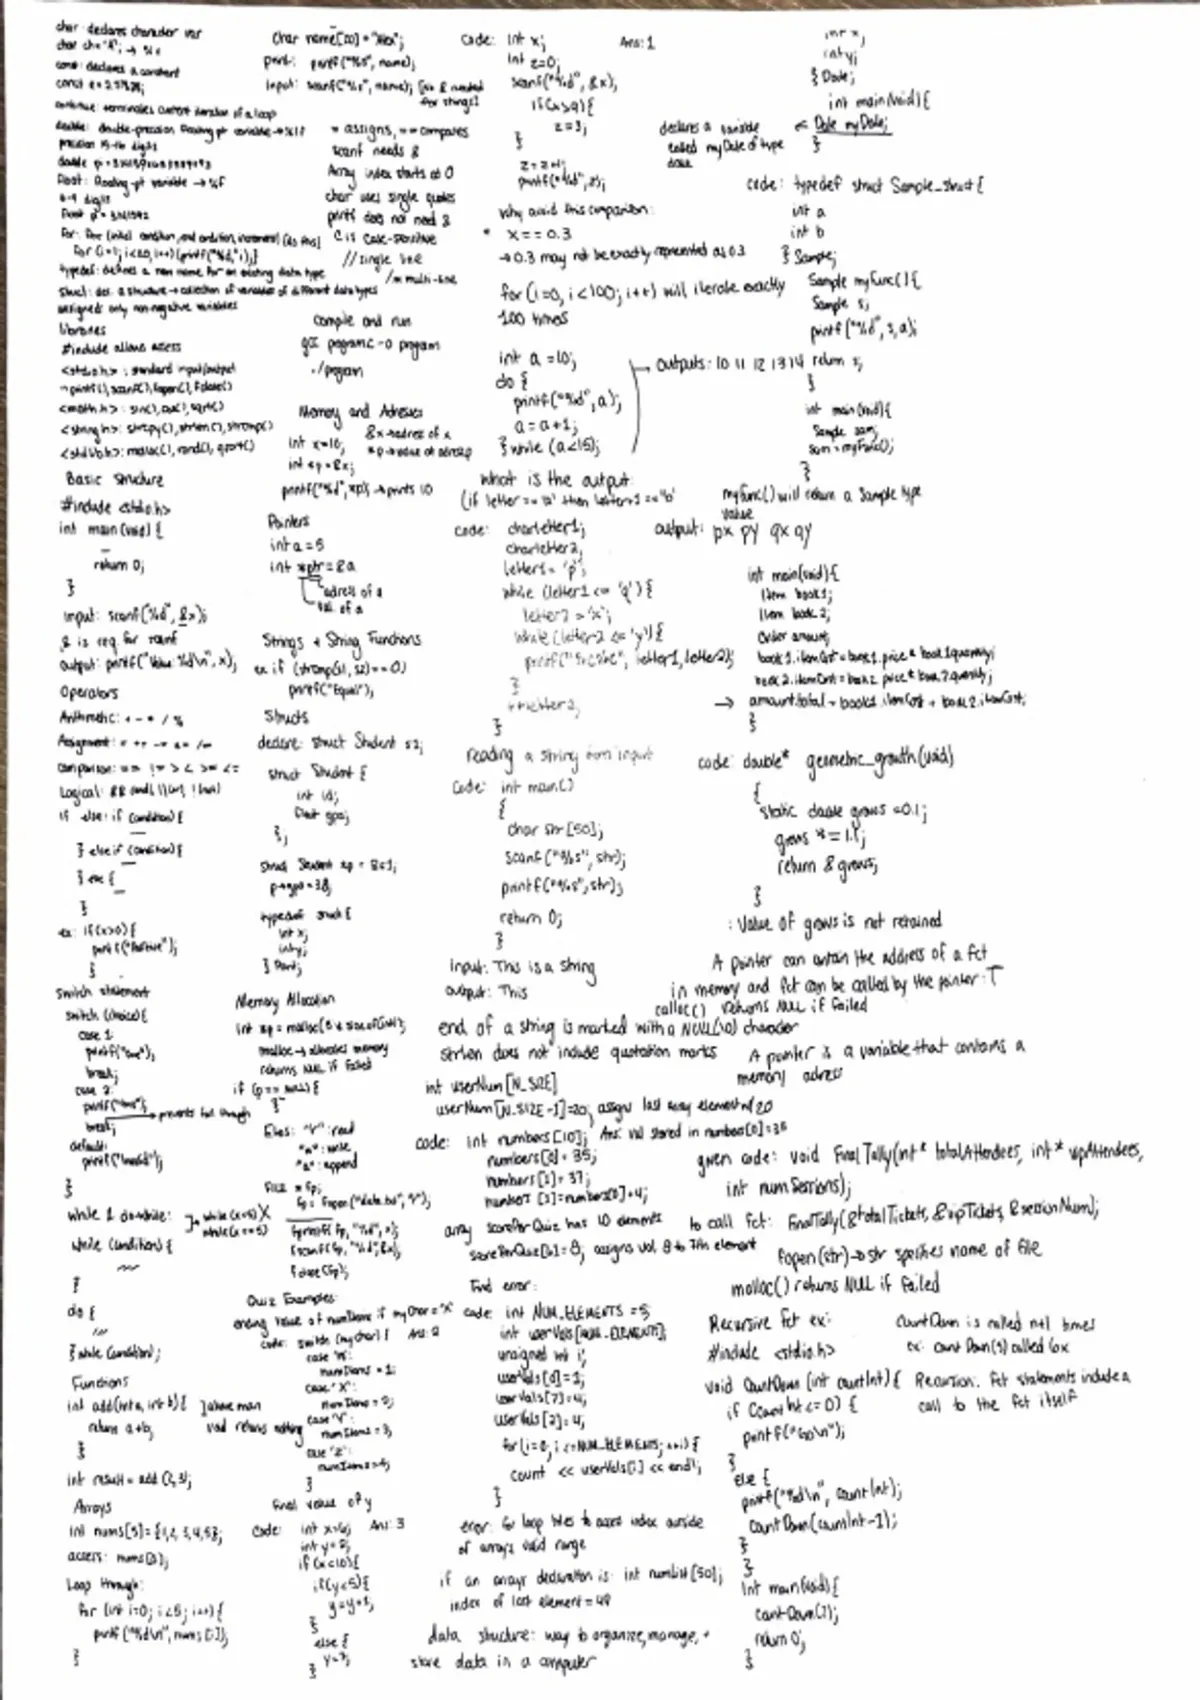 char: declares character var
char ch = 'A'; → %c
const: declares a constant
const e = 2.71828;
continue: terminates current iteration of a loop
double: double-precision floating pt variable → %lf
precision 15-16 digits
float: floating-pt variable → %f
6-9 digits
float p = 3.141592
typedef: defines a new name for an existing data type
unsigned: only non-negative variables
libraries
#include allows access
<stdio.h>: standard input/output
→ printf(), scanf(), fopen(), fclose()
<math.h>: sin(), cos(), sqrt()
<string.h>: strcpy(), strlen(), strcmp()
<stdlib.h>: malloc(), rand(), qsort()
Basic Structure
#include <stdio.h>
int main(void) {
return 0;
}
input: scanf("%d", &x);
& is req. for scanf
output: printf("Value: %d\n", x);
Operators
Arithmetic: + - * / %
Assignment: = += -= *= /=
comparison: == != > < >= <=
Logical: && (and) || (or) ! (not)
if else: if (condition) {
} else if (condition) {
} else {
}
ex: if(x>0){
printf("Positive");
}
Switch statement
switch (choice){
case 1:
printf("One");
break;
case 2:
printf("two");
break; → prevents fall through
default:
printf("Invalid");
}
while & do-while:
while (condition) {
}
do {
} while (condition);
Functions
int add(int a, int b) {
return a+b;
}
void returns nothing
int result = add(2,3);
Arrays
int nums[5] = {1,2,3,4,5};
access: nums[2];
Loop through:
for (int i=0; i<5; i++) {
printf("%d\n", nums[i]);
}
char name[20] = "Alex";
print: printf("%s", name);
input: scanf("%s", name); [no & needed for strings]
= assigns, == compares
scanf needs &
Array index starts at 0
char uses single quotes
printf does not need &
C is case-sensitive
// single line
/* multi-line
Compile and run
gcc program.c -o program
./program
Memory and Adresses
int x=10;
&x → adress of x
int *p = &x;
*p → value at adress p
printf("%d", *p); → prints 10
Pointers
int a = 5
int *ptr = &a
adress of a
val of a
Strings + String Functions
ex if (strcmp(s1, s2) == 0)
printf("Equal");
Structs
declare: struct Student s1;
struct Student {
int id;
float gpa;
};
struct Student *p = &s1;
p→gpa = 3.8;
typedef struct {
int x;
int y;
} Point;
Memory Allocation
int *p = malloc(5 * sizeof(int));
malloc → allocates memory
returns NULL if failed
if (p == NULL) {
}
Files: "r": read
"w": write
"a": append
FILE *fp;
fp = fopen("data.txt", "r");
fprintf(fp, "%d", x);
fscanf(fp, "%d", &x);
fclose(fp);
Quiz Examples:
ending value of numItems if myChar = 'X'
code: switch (myChar) { Ans: 2
case 'W':
numItems = 1;
case 'X':
numItems = 2;
case 'Y':
numItems = 3;
case 'Z':
numItems = 4;
}
final value of y
code: int x=6; Ans: 3
int y=2;
if (x<10){
if(y<5){
y=y+1;
}
else {
y=7;
}
Code: int x; Ans: 1
int z=0;
scanf("%d", &x);
if(x>9){
z=3;
}
z = z+1;
printf("%d", z);
why avoid this comparison:
• x == 0.3
→ 0.3 may not be exactly represented as 0.3
for (i=0; i<100; i++) will iterate exactly
100 times
int a = 10;
do {
printf("%d", a);
a = a+1;
} while (a<15);
outputs: 10 11 12 13 14
what is the output:
(if letter == 'a' then letter+1 == 'b'
code: char letter1;
char letter2;
letter1 = 'p';
while (letter1 <= 'q') {
letter2 = 'x';
while (letter2 <= 'y') {
printf("%c%c", letter1, letter2);
}
++letter2;
}
output: px py qx qy
reading a string from input
Code: int main()
{
char str [50];
scanf("%s", str);
printf("%s", str);
return 0;
}
Input: This is a string
output: This
end of a string is marked with a NULL(\0) character
strlen does not include quotation marks
int userNum [N_SIZE]
userNum [N_SIZE -1] = 20; assigns last array element w/ 20
code: int numbers [10]; Ans: val stored in numbers[0] = 35
numbers[0] = 35;
numbers[1] = 37;
numbers [1] = numbers[0]+4;
array scorePerQuiz has 10 elements
scorePerQuiz[6] = 8; assigns val 8 to 7th element
find error:
code: int NUM_ELEMENTS = 5
int userVals [NUM_ELEMENTS];
unsigned int i;
userVals [0] = 1;
userVals [7] = 4;
userVals [2] = 4;
for (i=0; i <= NUM_ELEMENTS; ++i) {
count << userVals[i] << endl;
}
error: for loop tries to access index outside
of arrays valid range
if an arrays declaration is int numList [50];
index of last element = 49
data structure: way to organize, manage, +
store data in a computer
int x;
int y;
} Date;
int main(void) {
← Date myDate;
}
declares a variable
called myDate of type
date
code: typedef struct Sample_struct {
int a
int b
} Sample;
Sample myFunc() {
Sample s;
printf("%d", s.a);
return s;
}
int main(void) {
Sample sam;
sam = myFunc();
}
myFunc() will return a Sample type
value
int main(void) {
Item book1;
Item book2;
Order amount;
book1.itemCost = book1.price * book1.quantity;
book2.itemCost = book2.price * book2.quantity;
→ amount.total = book1.itemCost + book2.itemCost;
}
code: double* geometric_growth(void)
{
static double grows = 0.1;
grows *= 1.1;
return & grows;
}
: Value of grows is not retained
A pointer can contain the address of a fct
in memory and fct can be called by the pointer: T
calloc() returns NULL if failed
A pointer is a variable that contains a
memory adress
given code: void FinalTally(int* totalAttendees, int* vipAttendees,
int numSessions);
to call fct: FinalTally(&totalTickets, &vipTickets, &sessionNum);
fopen(str) → str specifies name of file
malloc() returns NULL if failed
Recursive fct ex:
#include <stdio.h>
void CountDown (int countInt) {
if (countInt <= 0) {
printf("Go\n");
}
else {
printf("%d\n", countInt);
CountDown(countInt-1);
}
}
int main(void) {
CountDown(2);
return 0;
}
CountDown is called n+1 times
ex: CountDown(5) called 6x
Recursion: fct statements include a
call to the fct itself